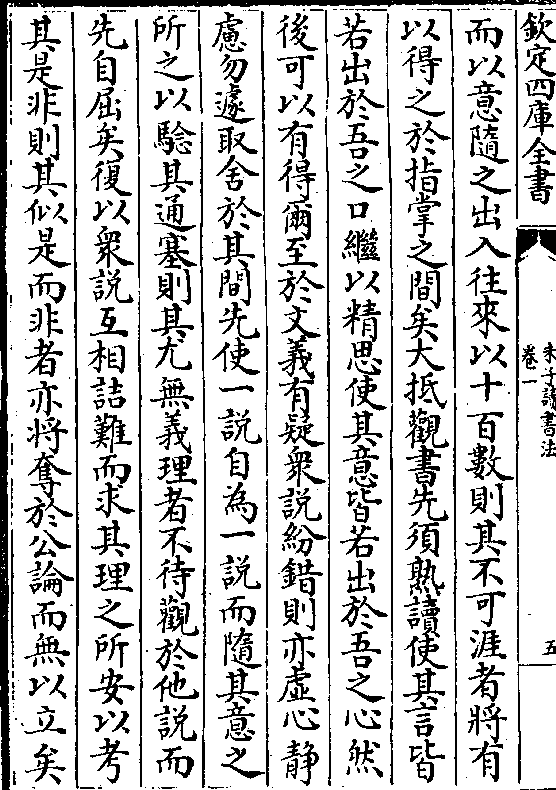 欽定四庫全書
朱子讀書法
卷一
五
而以意隨之出入往來以十百數則其不可涯者將有
以得之於指掌之間矣大抵觀書先須熟讀使其言皆
若出於吾之口繼以精思使其意皆若出於吾之心然
後可以有得爾至於文義有疑衆説紛錯則亦虚心静
慮勿遽取舍於其間先使一説自為一説而隨其意之
所之以驗其通塞則其尤無義理者不待觀於他説而
先自屈矣復以衆説互相詰難而求其理之所安以考
其是非則其似是而非者亦將奪於公論而無以立矣